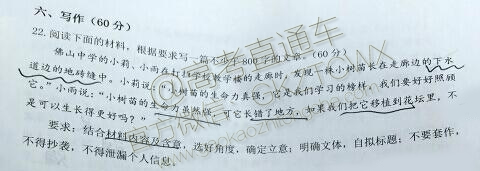 六、写作（60分）
22. 阅读下面的材料，根据要求写一篇不少于800字的文章。（60分）
佛山中学的小莉、小雨在打扫学校教学楼的走廊时，发现一株小树苗长在走廊边的下水
道边的地砖缝中。小莉说：“小树苗的生命力真强，它是我们学习的榜样，我们要好好照顾
它。”小雨说：“小树苗的生命力虽然强，可它长错了地方，如果我们把它移植到花坛里，不
是可以生长得更好吗？”
要求：结合材料内容及含意，选好角度，确定立意；明确文体，自拟标题；不要套作，
不得抄袭，不得泄漏个人信息。